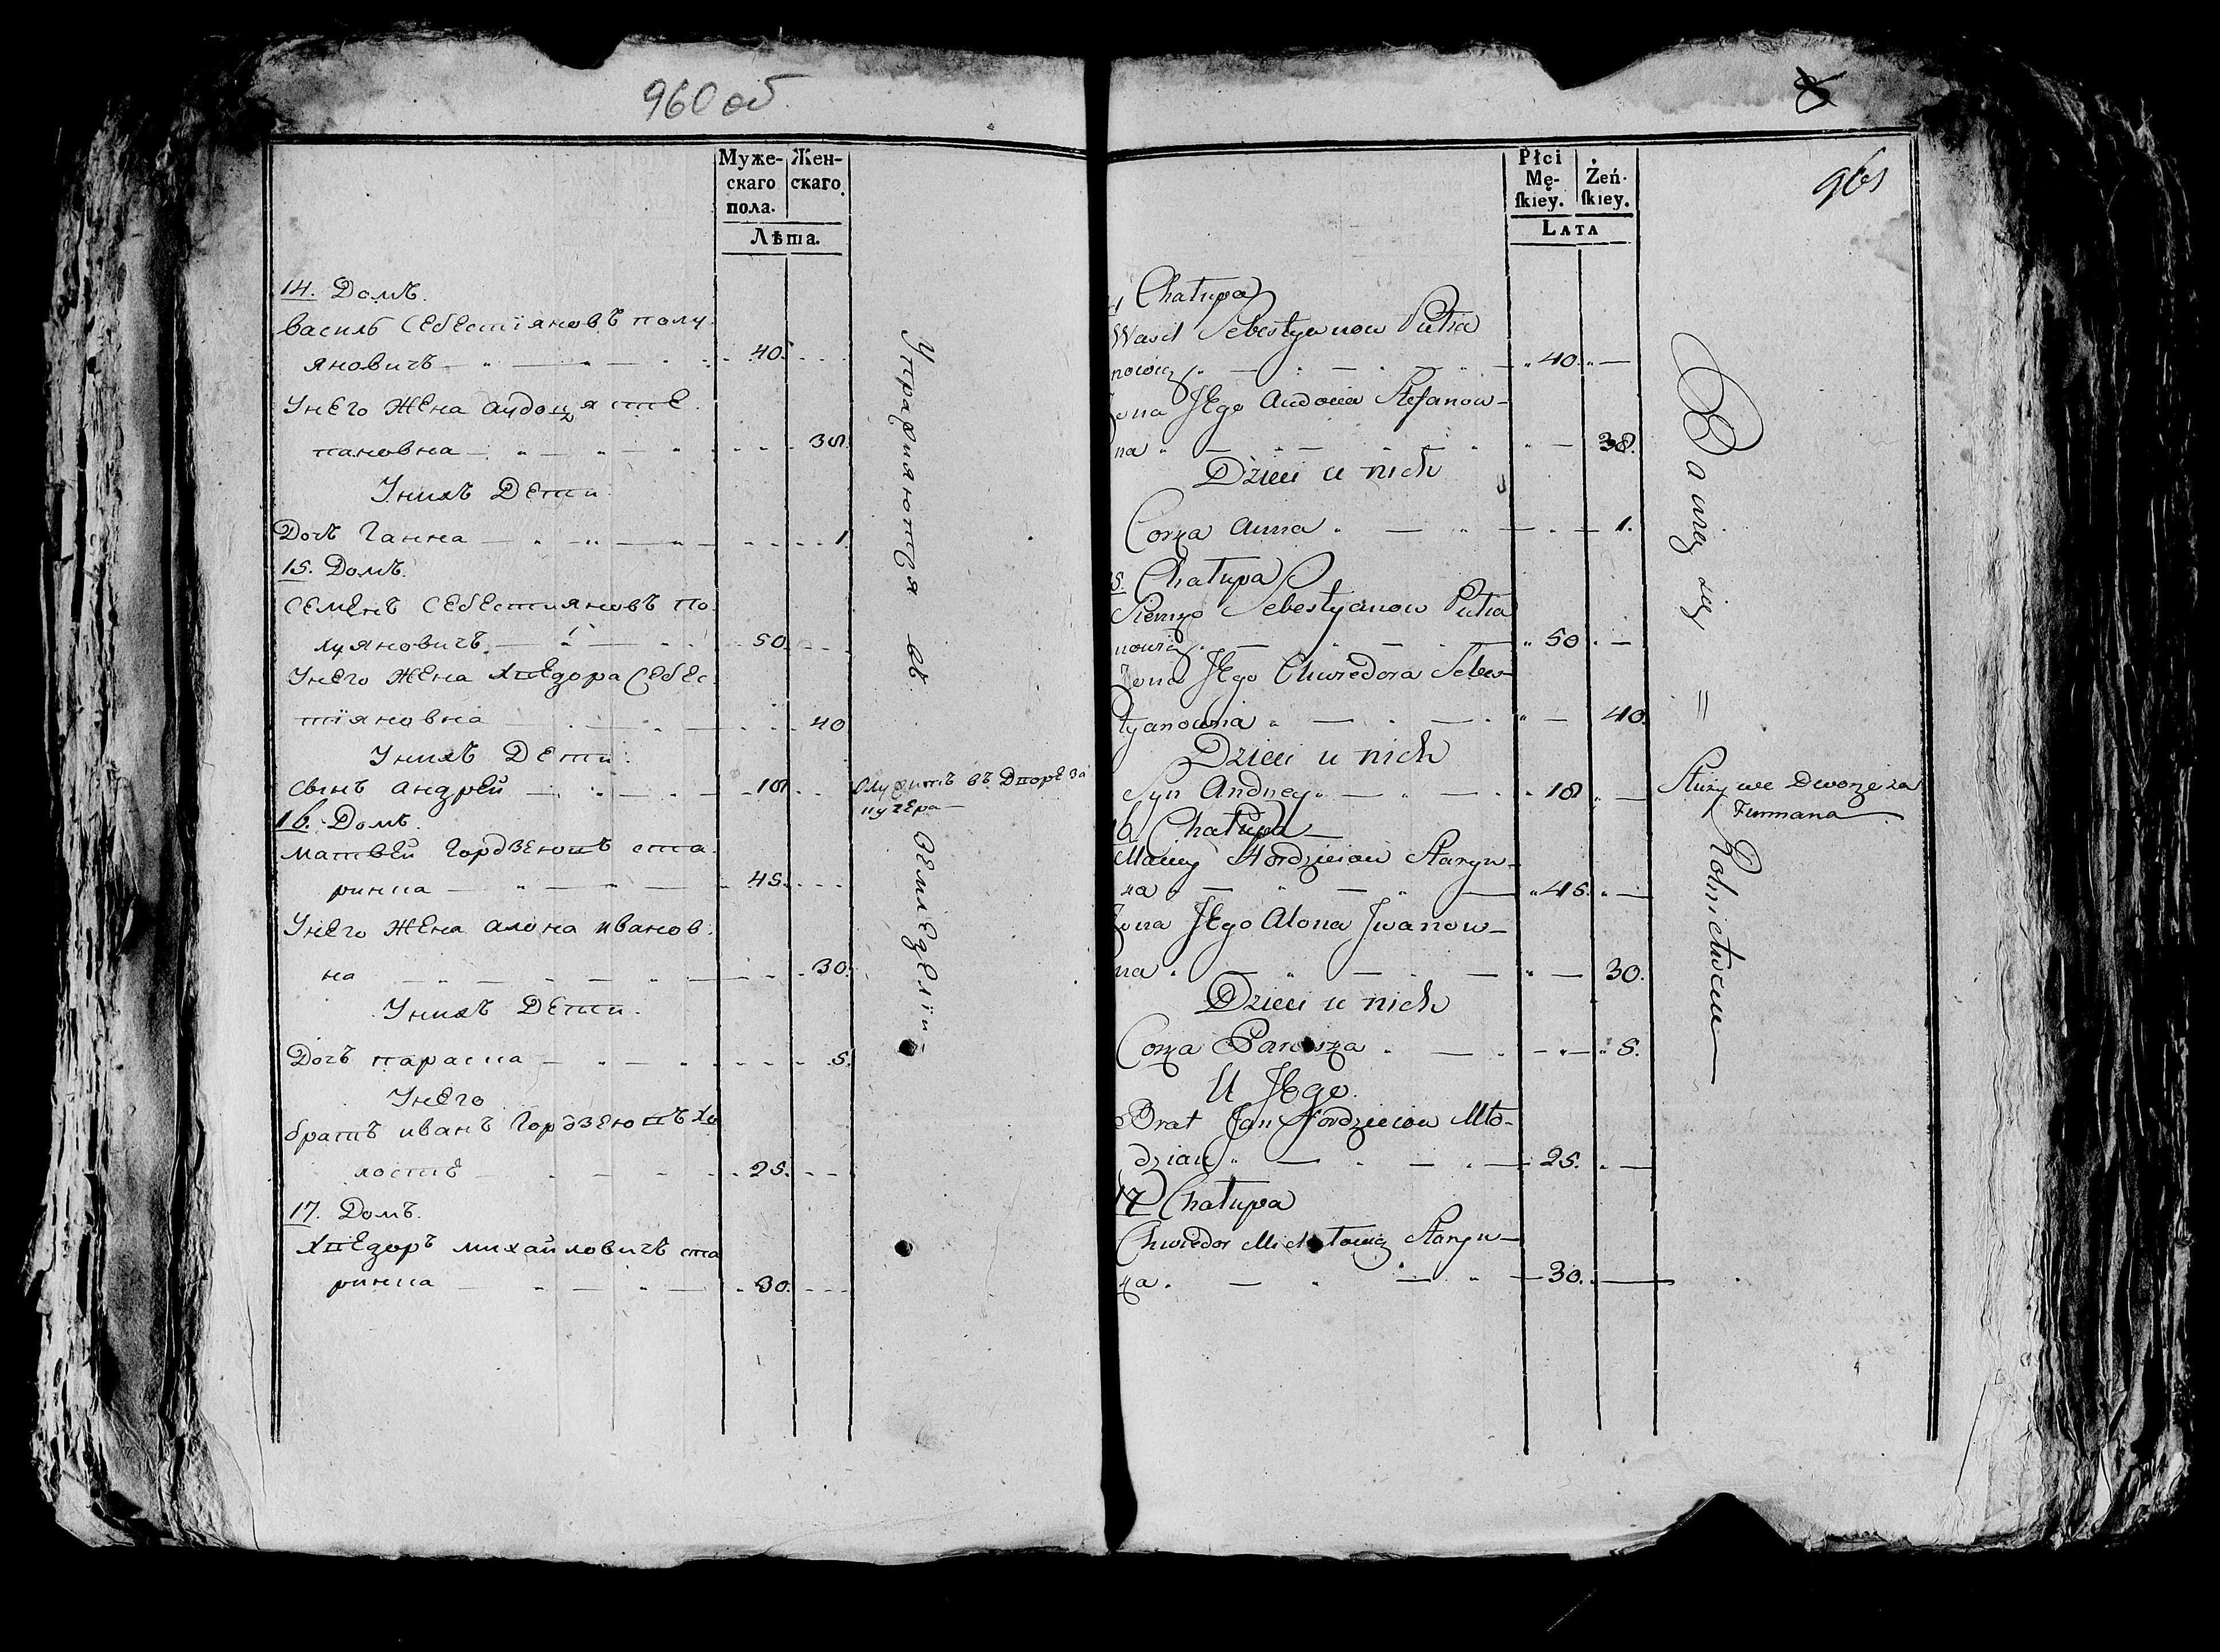 960 об
Муже-
скаго
пола.
Жен-
скаго.
Лѣта.
14. Домъ.
Василь Себестіяновъ полу
яновичъ 40.
Унего Жена аудоця сте
пановна 38.
Унихъ Дети.
Дочъ Ганна 1.
15. Домъ.
Семенъ Себестияновъ по
луяновичъ 50.
Унего Жена Хведора Себес
тіяновна 40
Унихъ Дети.
Сынъ андрей 18
16. Домъ.
Матвей Гордзеювъ ста
ринца 45.
Унего Жена алона иванов
на 30.
Унихъ Дети.
Дочъ параска 5.
Унего
братъ иванъ Гордзеювъ Хо
лостъ 25.
17. Домъ.
Хведоръ михайловичъ ста
ринца 30.
Упражняются въ земледеліи
въ Дворе за
961
Płci
Mę-
ſkiey.
Żeń-
ſkiey.
LATA
Chałupa
Wasil Sebestyanow Pułia
nowicz 40.
Zona JEgo Audocia Stefanow-
na 38.
Dzieci u nich
Corka Anna 1.
5. Chałupa
Siemion Sebestyanow Pułia
nowicz 50
Zona JEgo Chwiedora Sebes-
tyanowna 40.
Dzieci u nich
Syn Andrzey 18
16 Chałupa
Maciey Hordzieiow Staryn-
ka 45.
Zona JEgo Alona Jwanow-
na 30.
Dzieci u nich
Corka Paraska 5.
U JEgo
Brat Jan Hordzieiow Mło-
dzian 25.
17 Chałupa
Chwiedor Michałowicz Staryn-
ka. 30.
Bawią się = Rolnictwem
Służy we Dworze za
Furmana